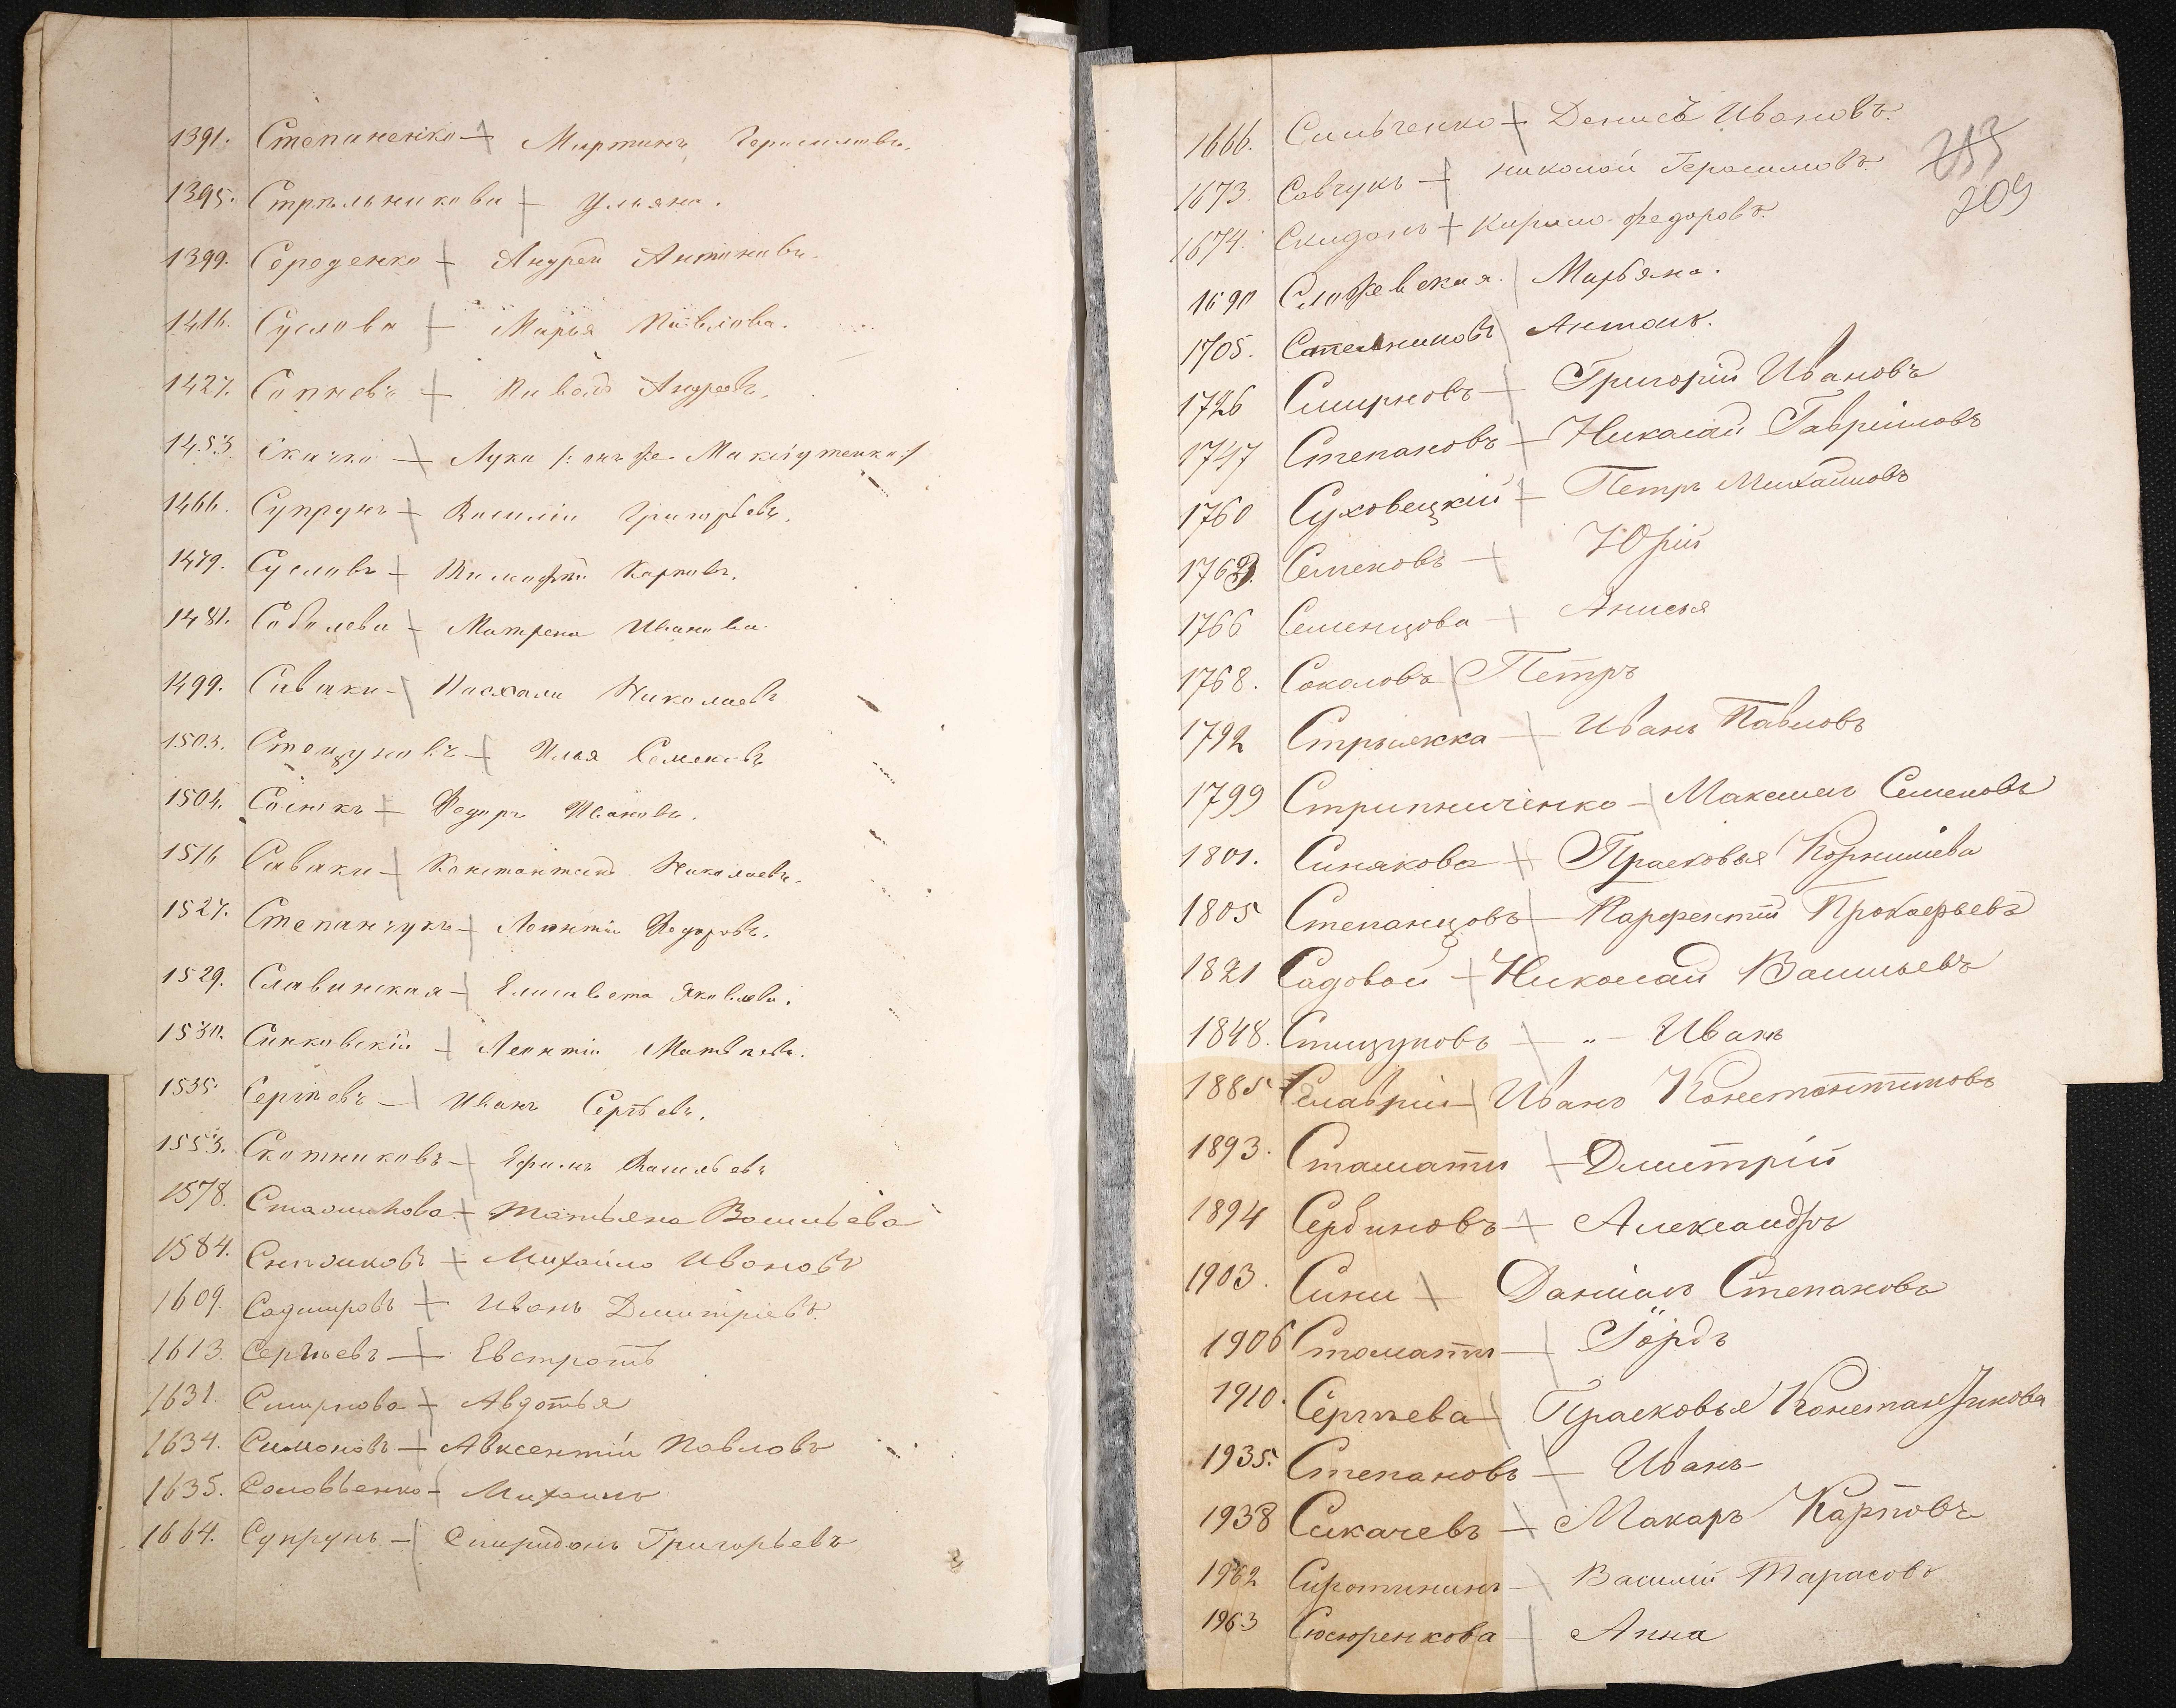 1391. Степаненко — Мартинъ Герасимовъ.
1395. Стрѣльникова — Ульяна.
1399. Середенко — Андрей Антоновъ.
1416. Суслова — Марья Павлова.
1427. Сопневъ — Павелъ Андреевъ.
1453. Скачко — Лука /: онъ же
1466. Супрунъ — Василій Григорьевъ.
1479. Сусловъ — Тимофѣй Карповъ.
1481. Соболева — Матрена Иванова.
1499. Саваки — Пасхали Николаевъ
1503. Стецуновъ — Илья Семеновъ
1504. — Федоръ Ивановъ.
1516 Саваки — Константинъ Николаевъ.
1527. Степанчукъ — Леонтій Федоровъ.
1529. Славинская — Елисавета Яковлева.
1530. Синковскій — Леонтій Матвѣевъ.
1535. Сергѣевъ — Иванъ Сергѣевъ.
1553. Скотниковъ — Ефимъ Васильевъ
1578. — Татьяна Васильева
1584. — Михайло Ивановъ
1609. — Иванъ Дмитріевъ.
1613. Сергѣевъ — Евстратъ
1631. Смирнова — Авдотья
1634. Симоновъ — Авксентій Павловъ
1635. Соловьенко — Михаилъ
1664. Супрунъ — Спиридонъ Григорьевъ
209
1666. Сильченко — Денисъ Ивановъ.
1673. Савчукъ — Николай Герасимовъ.
1674. Скиданъ — Кирило Федоровъ.
1690 Слажевская. Марьяна.
1705. Антонъ.
1726 Смирновъ — Григорій Ивановъ
1747 Степановъ — Николай Гавриловъ
1760 Суховецкій — Петръ Михайловъ
1763. Семеновъ — Юрій
1766 Семенцова — Анисья
1768. Соколовъ Петръ
1792 Стрижка — Иванъ Павловъ
1799 Стрипниченко — Максимъ Семеновъ
1801. Синякова — Прасковья Корнилиева
1805 Степанцовъ — Парфентій Прокофьевъ
1821 Садовой — Николай Васильевъ
1848. Стицуновъ — „ — Иванъ
1885 Склаврій — Иванъ Константиновъ
1893. Стамати — Дмитрій
1894 Сербиновъ — Александръ
1903. Сини Даніилъ Степановъ
1906 Стамати — Іордъ
1910. Сергѣева — Прасковья Константинова
1935. Степановъ — Иванъ
1938 Сикачевъ — Макаръ Карповъ
1962 Сиротининъ — Василій Тарасовъ
1963 Сюсюренкова — Анна